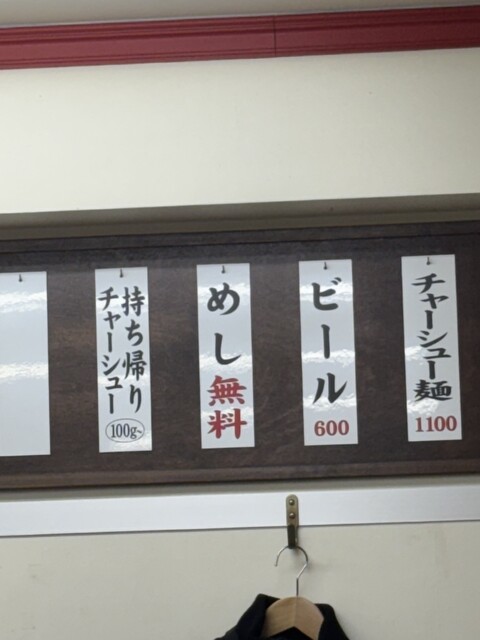 チャーシュー麺
1100
ビール
600
めし無料
持ち帰り
チャーシュー
100g~